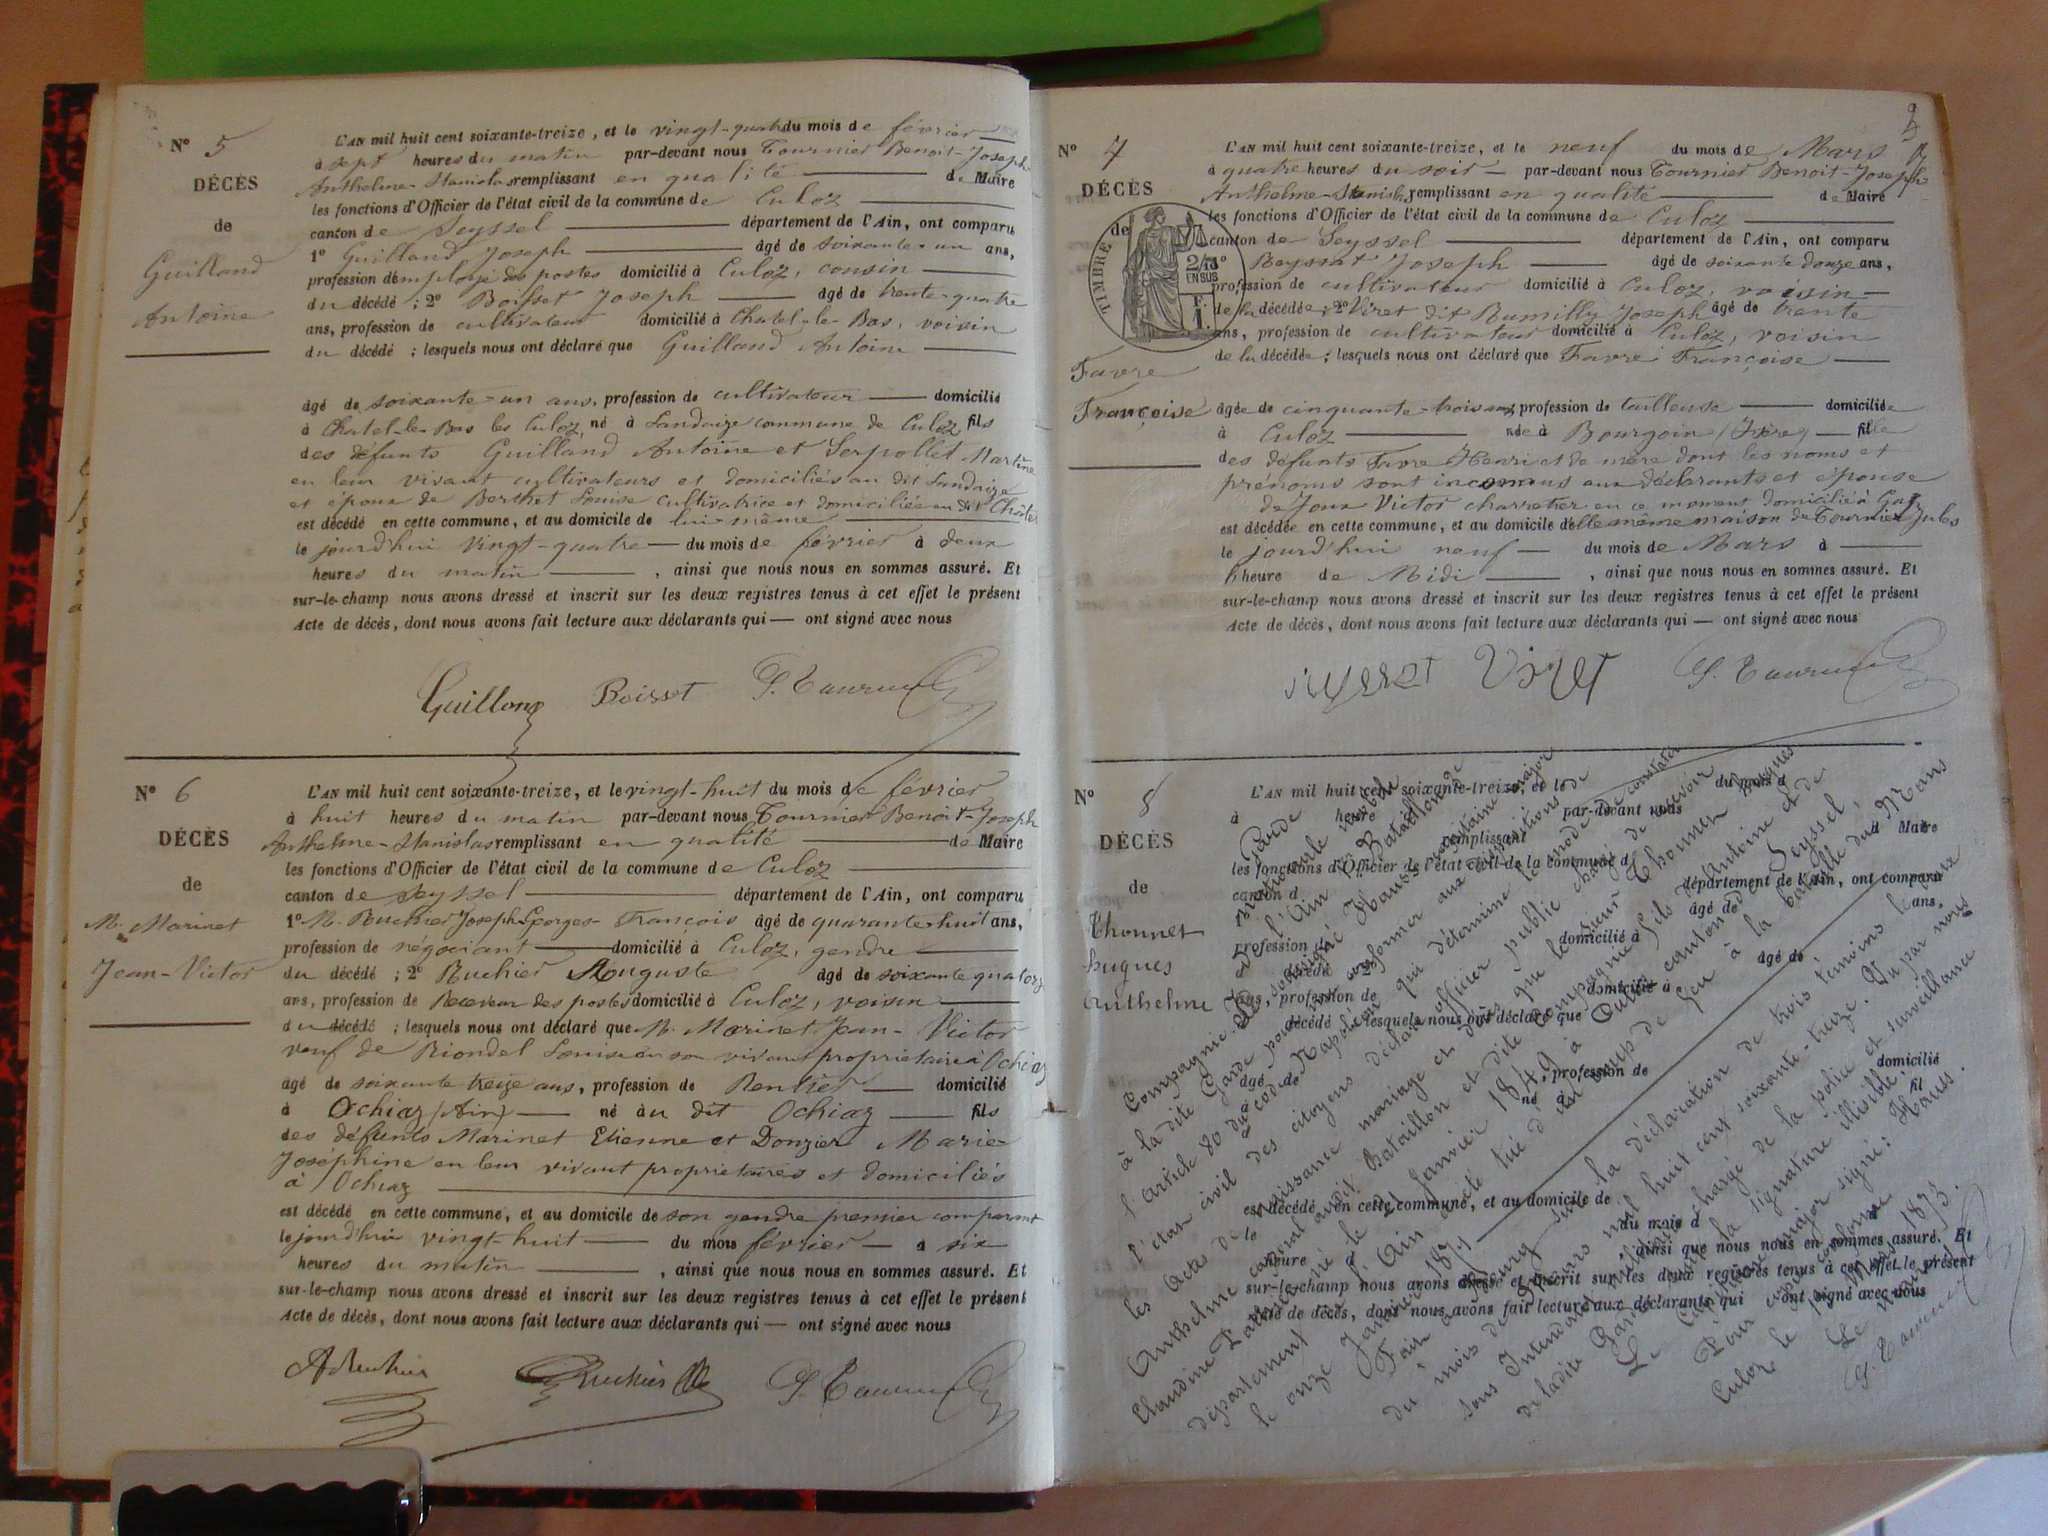 N° 5
DÉCÈS
de
Guilland
Antoine
L'AN mil huit cent soixante-treize, et le vingt-quatre du mois de février
à sept heures du matin par-devant nous Tournier Benoit-Joseph
Anthelme-Stanislas remplissant en qualité de Maire
les fonctions d'Officier de l'état civil de la commune de Culoz
canton de Seyssel département de l'Ain, ont comparu
1° Guilland Joseph âgé de soixante-un ans,
profession d'employé des postes domicilié à Culoz, cousin
du décédé ; 2° Boisset Joseph âgé de trente-quatre
ans, profession de cultivateur domicilié à Chatel-le-Bas, voisin
du décédé ; lesquels nous ont déclaré que Guilland Antoine
âgé de soixante-un ans, profession de cultivateur domicilié
à Chatel-le-Bas les Culoz, né à Landaize commune de Culoz fils
des défunts Guilland Antoine et Serpollet Martine
en leur vivant cultivateurs et domiciliés au dit Landaize
et époux de Berthet Louise cultivatrice et domiciliée au dit Châtel
est décédé en cette commune, et au domicile de lui-même
le jourd'hui vingt-quatre du mois de février à deux
heures du matin , ainsi que nous nous en sommes assuré. Et
sur-le-champ nous avons dressé et inscrit sur les deux registres tenus à cet effet le présent
Acte de décès, dont nous avons fait lecture aux déclarants qui — ont signé avec nous
Boisset
N° 6
DÉCÈS
de
M. Marinet
Jean-Victor
L'AN mil huit cent soixante-treize, et le vingt-huit du mois de février
à huit heures du matin par-devant nous Tournier Benoit-Joseph
Anthelme-Stanislas remplissant en qualité de Maire
les fonctions d'Officier de l'état civil de la commune de Culoz
canton de Seyssel département de l'Ain, ont comparu
1° M. Ruchier Joseph-Georges-François âgé de quarante-huit ans,
profession de négociant domicilié à Culoz, gendre
du décédé ; 2° Ruchier Auguste âgé de soixante quatorze
ans, profession de Receveur des postes domicilié à Culoz, voisin
du décédé ; lesquels nous ont déclaré que M. Marinet Jean-Victor
veuf de Riondel Louise en son vivant propriétaire à Ochiaz
âgé de soixante treize ans, profession de Rentier domicilié
à Ochiaz (Ain) né au dit Ochiaz fils
des défunts Marinet Etienne et Donzier Marie-
Joséphine en leur vivant propriétaires et domiciliés
à Ochiaz
est décédé en cette commune, et au domicile de son gendre premier comparant
le jourd'hui vingt-huit du mois février à six
heures du matin , ainsi que nous nous en sommes assuré. Et
sur-le-champ nous avons dressé et inscrit sur les deux registres tenus à cet effet le présent
Acte de décès, dont nous avons fait lecture aux déclarants qui — ont signé avec nous
N° 7
DÉCÈS
de
Favre
Françoise
TIMBRE
2/10
EN SUS
L'AN mil huit cent soixante-treize, et le neuf du mois de Mars
à quatre heures du soir par-devant nous Tournier Benoit-Joseph
Anthelme-Stanislas remplissant en qualité de Maire
les fonctions d'Officier de l'état civil de la commune de Culoz
canton de Seyssel département de l'Ain, ont comparu
1° Joseph âgé de soixante douze ans,
profession de cultivateur domicilié à Culoz, voisin
de la décédée ; 2° Viret dit Rumilly Joseph âgé de trente
ans, profession de cultivateur domicilié à Culoz, voisin
de la décédée ; lesquels nous ont déclaré que Favre Françoise
âgée de cinquante-trois ans, profession de tailleuse domiciliée
à Culoz née à Bourgoin (Isère) fille
des défunts Favre Henri et de mère dont les noms et
prénoms sont inconnus aux déclarants et épouse
de Joux Victor charretier en ce moment domicilié à
est décédée en cette commune, et au domicile d'elle même maison de Tournier Jules
le jourd'hui neuf du mois de Mars à
heure de Midi , ainsi que nous nous en sommes assuré. Et
sur-le-champ nous avons dressé et inscrit sur les deux registres tenus à cet effet le présent
Acte de décès, dont nous avons fait lecture aux déclarants qui — ont signé avec nous
Viret
N° 8
DÉCÈS
de
Thonnet
hugues
Anthelme
L'AN mil huit cent soixante-treize, et le du mois d
à heure par-devant nous
remplissant d Maire
les fonctions d'Officier de l'état civil de la commune d
canton d département de l'Ain, ont comparu
âgé de ans,
profession d domicilié à
décédé 2° âgé de
ans, profession de domicilié à
décédé lesquels nous ont déclaré que
âgé de , profession de domicilié
à né à fil
est décédé en cette commune, et au domicile de
le du mois d à
heure ainsi que nous nous en sommes assuré. Et
sur-le-champ nous avons dressé et inscrit sur les deux registres tenus à cet effet le présent
Acte de décès, dont nous avons fait lecture aux déclarants qui ont signé avec nous
Garde nationale mobile
de l'Ain Bataillon
Compagnie. Je soussigné Hauss capitaine major
à la dite Garde pour me conformer aux dispositions de
l'article 80 du code Napoléon qui détermine le mode de constater
l'état civil des citoyens déclare officier public chargé de recevoir
les actes de naissance mariage et décès que le sieur Thonnet hugues
Anthelme caporal audit Bataillon et dite compagnie fils d'Antoine et de
Claudine né le Janvier 1849 à Culoz canton de Seyssel,
département de l'Ain a été tué d'un coup de feu à la bataille du Mans
le onze Janvier 1871
Fait à Bourg sur la déclaration de trois témoins le
du mois de mil huit cent soixante-treize. Vu par nous
sous Intendant militaire chargé de la police et surveillance
de ladite Garde la signature illisible.
Le Capitaine major signé: Hauss.
Pour copie conforme
Culoz le Mars 1873.
Le maire